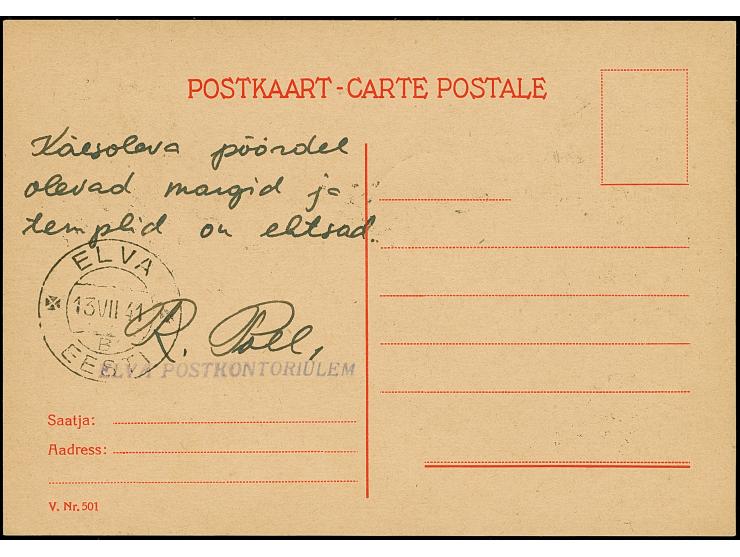 POSTKAART - CARTE POSTALE
Käesoleva pöördel
olevad margid ja
templid on ehtsad.
ELVA
13 VII 41
B
EESTI
R. Poll,
ELVA POSTKONTORIÜLEM
Saatja:
Aadress:
V. Nr. 501